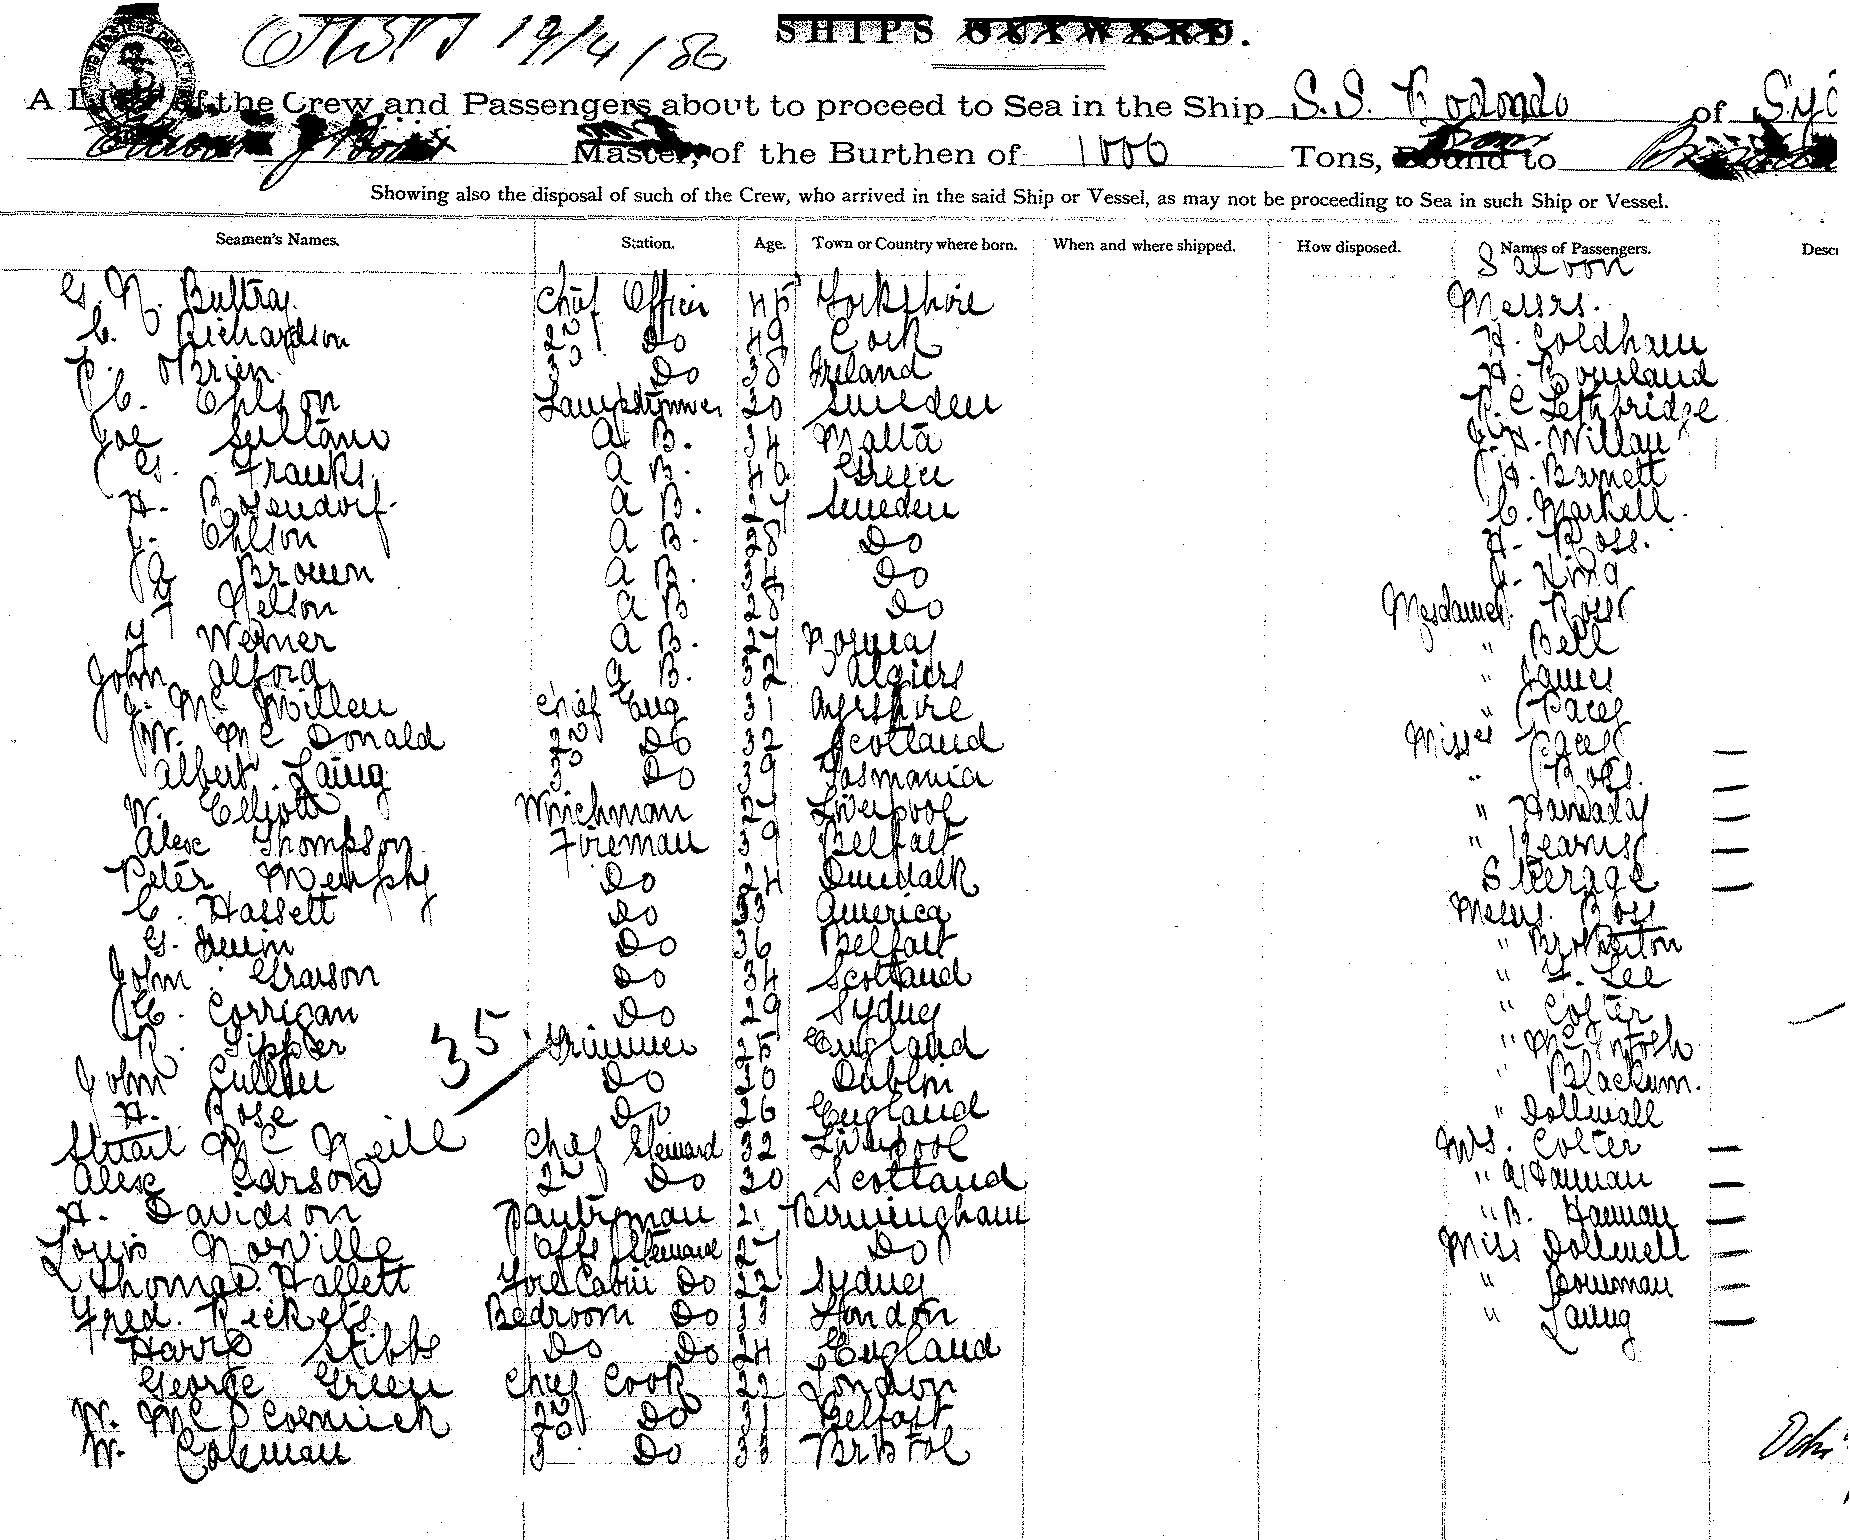 19/4/86 SHIPS OUTWARD.
A List of the Crew and Passengers about to proceed to Sea in the Ship S.S. Rodondo of Syd
Master, of the Burthen of 1000 Tons, Bound to
Showing also the disposal of such of the Crew, who arrived in the said Ship or Vessel, as may not be proceeding to Sea in such Ship or Vessel.
Seamen's Names. Station. Age. Town or Country where born. When and where shipped. How disposed. Names of Passengers. Descr
Saloon
G. N. Bultray Chief Officer 45 Yorkshire Messrs.
C. Richardson 2nd Do 49 Cork H. Coldham
P. O'Brien 3rd Do 38 Ireland A. Rowland
C. Ohlson Lamptrimmer 20 Sweden R. C Lethbridge
Joe Sultano A B. 34 Malta J. H. Willan
G. Franks A B. 40 Greece H. Barnett
H. Rosendorf A B. 27 Sweden C. Markell.
J. Ohlson A B. 28 Do A. Ross.
A Brown A B. 34 Do J. King
Nelson A B 28 Do Mesdames Ross
Y Werner A B. 27 Norway " Bell
John Alford A B. 32 Algiers " James
J. Mc Millen Chief Eng 31 Ayrshire " Pacey
W. Mc Donald 2nd Do 32 Scotland Misses Pacey
Albert Laing 3rd Do 39 Tasmania " Ross.
W. Elliott Winchman 27 Liverpool " Hannaday
Alex Thompson Fireman 39 Belfast " Kearns
Peter Murphy Do 24 Dundalk Steerage
C. Hassett Do 33 America Messrs. Ross
G. Irwin Do 36 Belfast " Brotherton
John Grason Do 34 Scotland " Y. Lee
C. Corrigan Do 29 Sydney " Colter
R. Tippler Trimmer 25 England " McIntosh
35
John Cullen Do 30 Dublin " Blackum.
H. Rose Do 26 England " Dollwall
Stuart Mc Neill Chief Steward 32 Liverpool Mrs. Colter
Alex Carson 2nd Do 30 Scotland " A Hannan
H. Davidson Pantryman 21 Birmingham " B. Hannan
Louis Norville Steward 27 Do Miss Dollwell
Thomas Hallett Fore Cabin Do 22 Sydney " Bowman
Fred. Rickets Bedroom Do 33 London " Laing
Harry Stibbs Do Do 24 England
George Green Chief Cook 22 London
W. McCormick 2nd Do 31 Belfast
W. Coleman 3 Do 33 Bristol